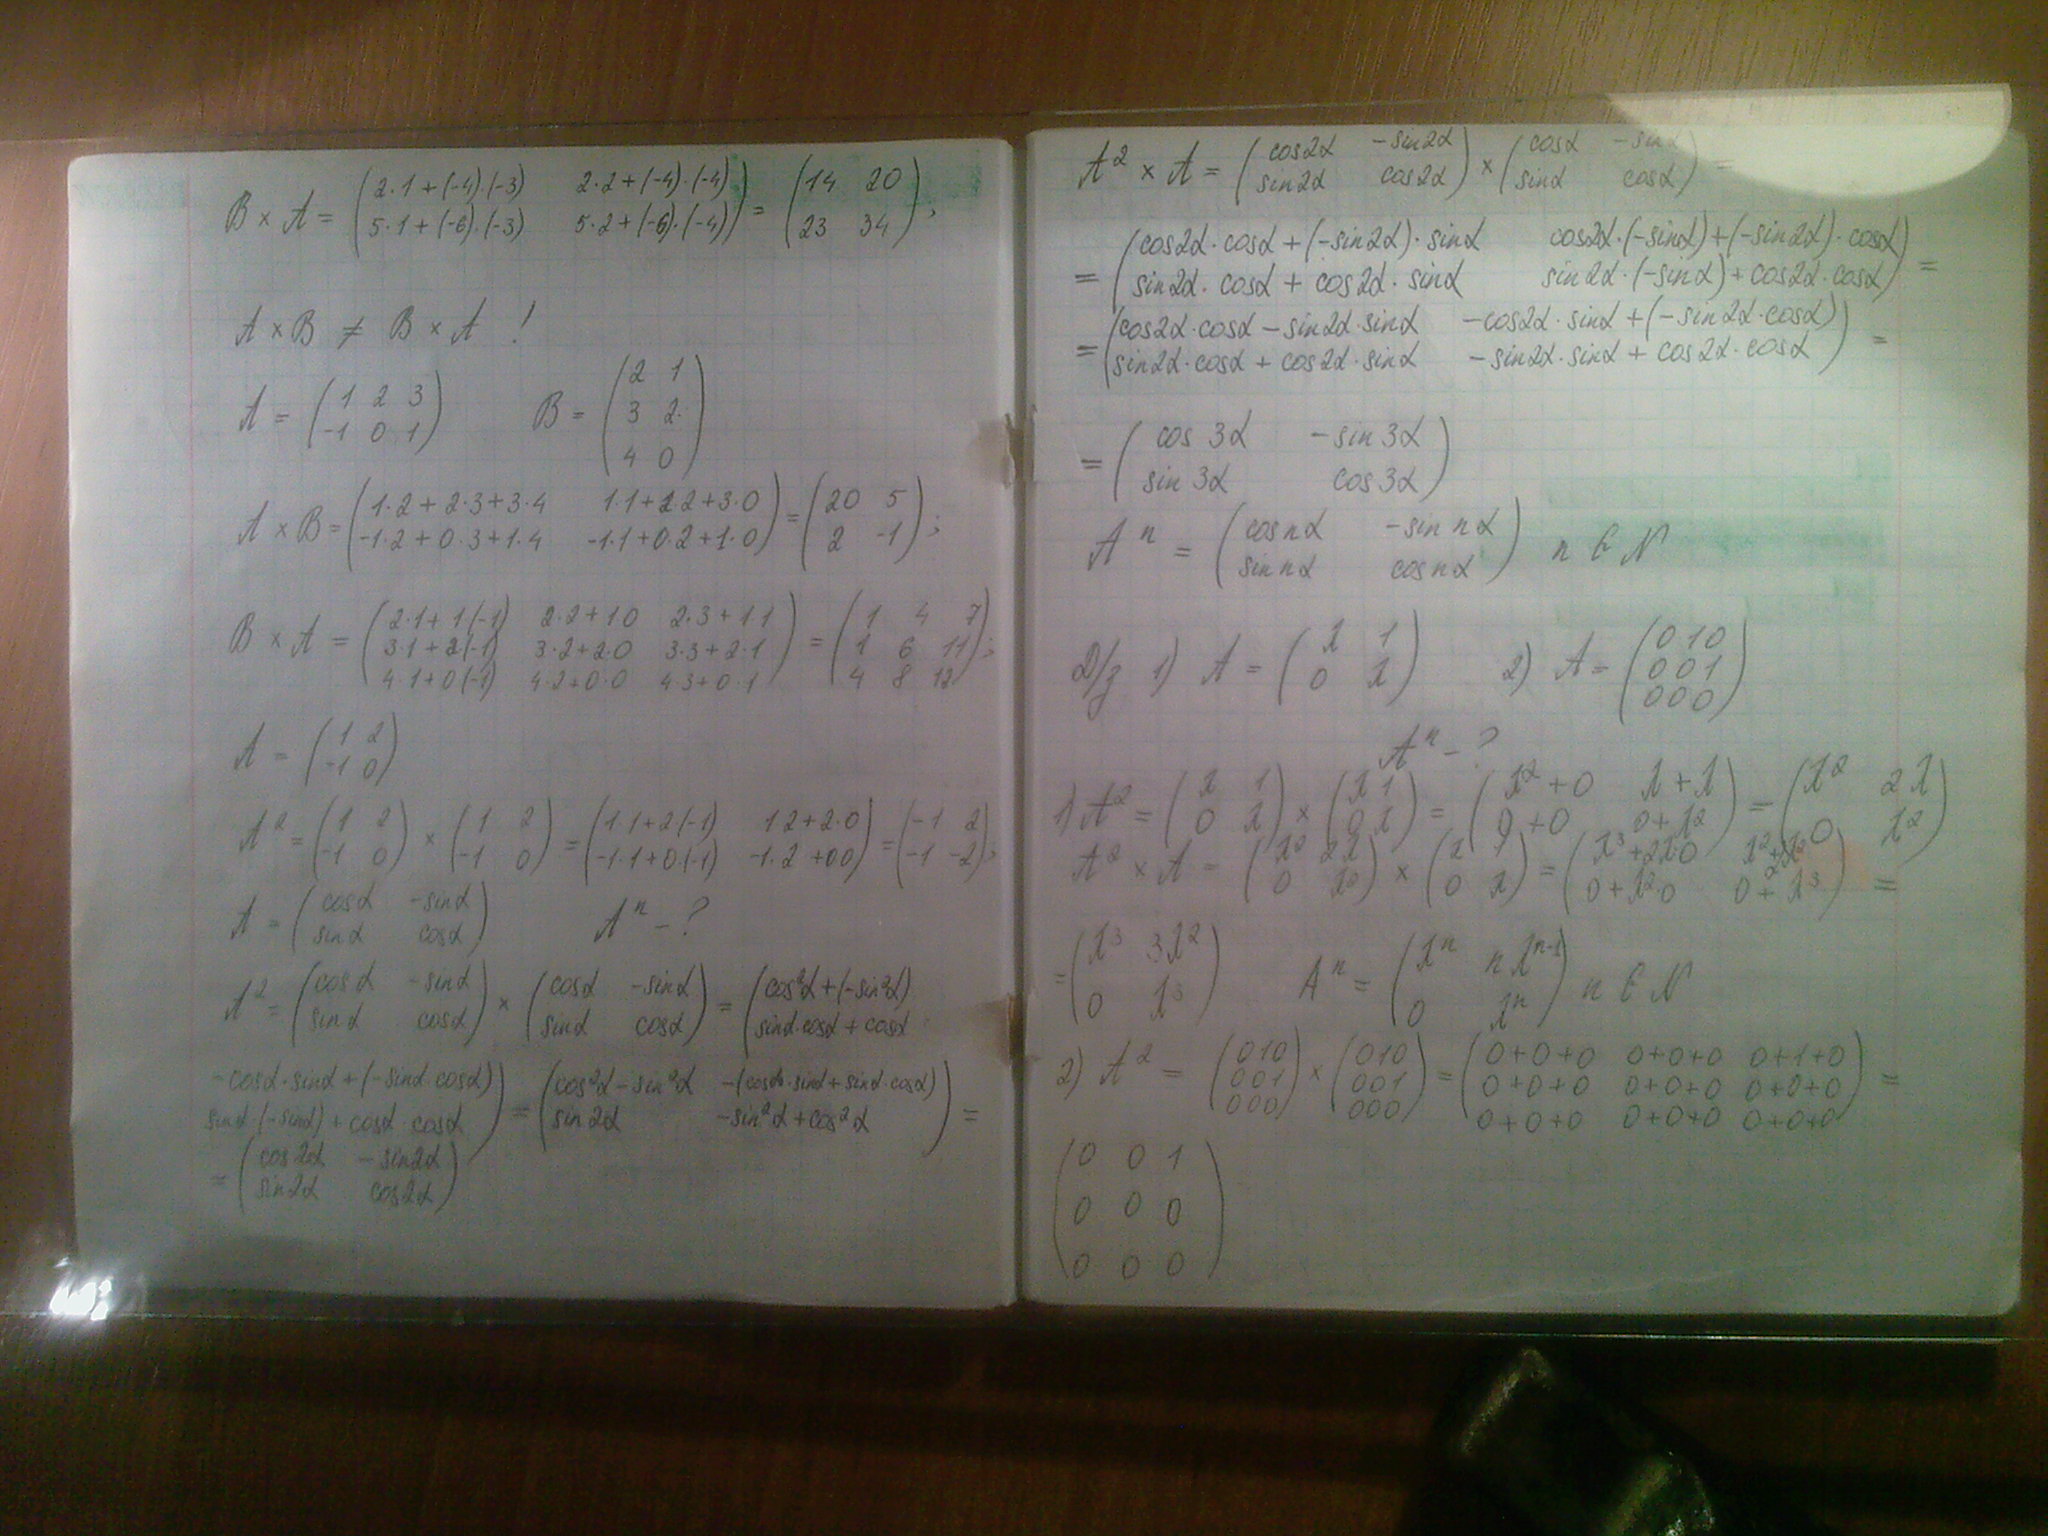 B × A = (2·1+(-4)·(-3) 2·2+(-4)·(-4)) = (14 20)
(5·1+(-6)·(-3) 5·2+(-6)·(-4)) (23 34);
A × B ≠ B × A !
A = (1 2 3) B = (2 1)
(-1 0 1) (3 2)
(4 0)
A × B = (1·2+2·3+3·4 1·1+2·2+3·0) = (20 5)
(-1·2+0·3+1·4 -1·1+0·2+1·0) (2 -1);
B × A = (2·1+1(-1) 2·2+1·0 2·3+1·1) = (1 4 7)
(3·1+2(-1) 3·2+2·0 3·3+2·1) (1 6 11);
(4·1+0(-1) 4·2+0·0 4·3+0·1) (4 8 12)
A = (1 2)
(-1 0)
A² = (1 2) × (1 2) = (1·1+2(-1) 1·2+2·0) = (-1 2)
(-1 0) (-1 0) (-1·1+0(-1) -1·2+0·0) (-1 -2);
A = (cosα -sinα) Aⁿ - ?
(sinα cosα)
A² = (cosα -sinα) × (cosα -sinα) = (cos²α+(-sin²α)
(sinα cosα) (sinα cosα) (sinα·cosα+cosα
-cosα·sinα+(-sinα·cosα)) = (cos²α-sin²α -(cosα·sinα+sinα·cosα)) =
sinα·(-sinα)+cosα·cosα) (sin2α -sin²α+cos²α)
= (cos2α -sin2α)
(sin2α cos2α)
A² × A = (cos2α -sin2α) × (cosα -sinα) =
(sin2α cos2α) (sinα cosα)
= (cos2α·cosα+(-sin2α)·sinα cos2α·(-sinα)+(-sin2α)·cosα) =
(sin2α·cosα+cos2α·sinα sin2α·(-sinα)+cos2α·cosα)
= (cos2α·cosα-sin2α·sinα -cos2α·sinα+(-sin2α·cosα)) =
(sin2α·cosα+cos2α·sinα -sin2α·sinα+cos2α·cosα)
= (cos 3α -sin 3α)
(sin 3α cos 3α)
Aⁿ = (cos nα -sin nα) n ∈ N
(sin nα cos nα)
D/з 1) A = (λ 1) 2) A = (0 1 0)
(0 λ) (0 0 1)
(0 0 0)
Aⁿ - ?
1) A² = (λ 1) × (λ 1) = (λ²+0 λ+λ) = (λ² 2λ)
(0 λ) (0 λ) (0+0 0+λ²) (0 λ²)
A² × A = (λ² 2λ) × (λ 1) = (λ³+2λ·0 λ²+2λ²) =
(0 λ²) (0 λ) (0+λ²·0 0+λ³)
= (λ³ 3λ²) Aⁿ = (λⁿ nλⁿ⁻¹) n ∈ N
(0 λ³) (0 λⁿ)
2) A² = (0 1 0) × (0 1 0) = (0+0+0 0+0+0 0+1+0) =
(0 0 1) (0 0 1) (0+0+0 0+0+0 0+0+0)
(0 0 0) (0 0 0) (0+0+0 0+0+0 0+0+0)
(0 0 1)
(0 0 0)
(0 0 0)